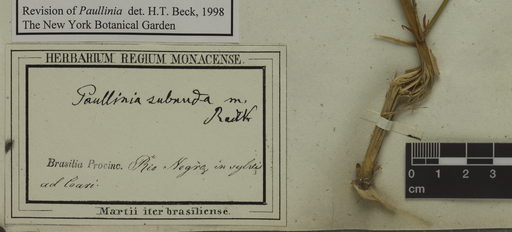 Revision of Paullinia det. H.T. Beck, 1998
The New York Botanical Garden
HERBARIUM REGIUM MONACENSE.
Paullinia subnuda m.
Radlk
Brasilia Provinc. Rio Negro, in sylvis
ad Coari.
Martii iter brasiliense.
0 1 2 3
cm